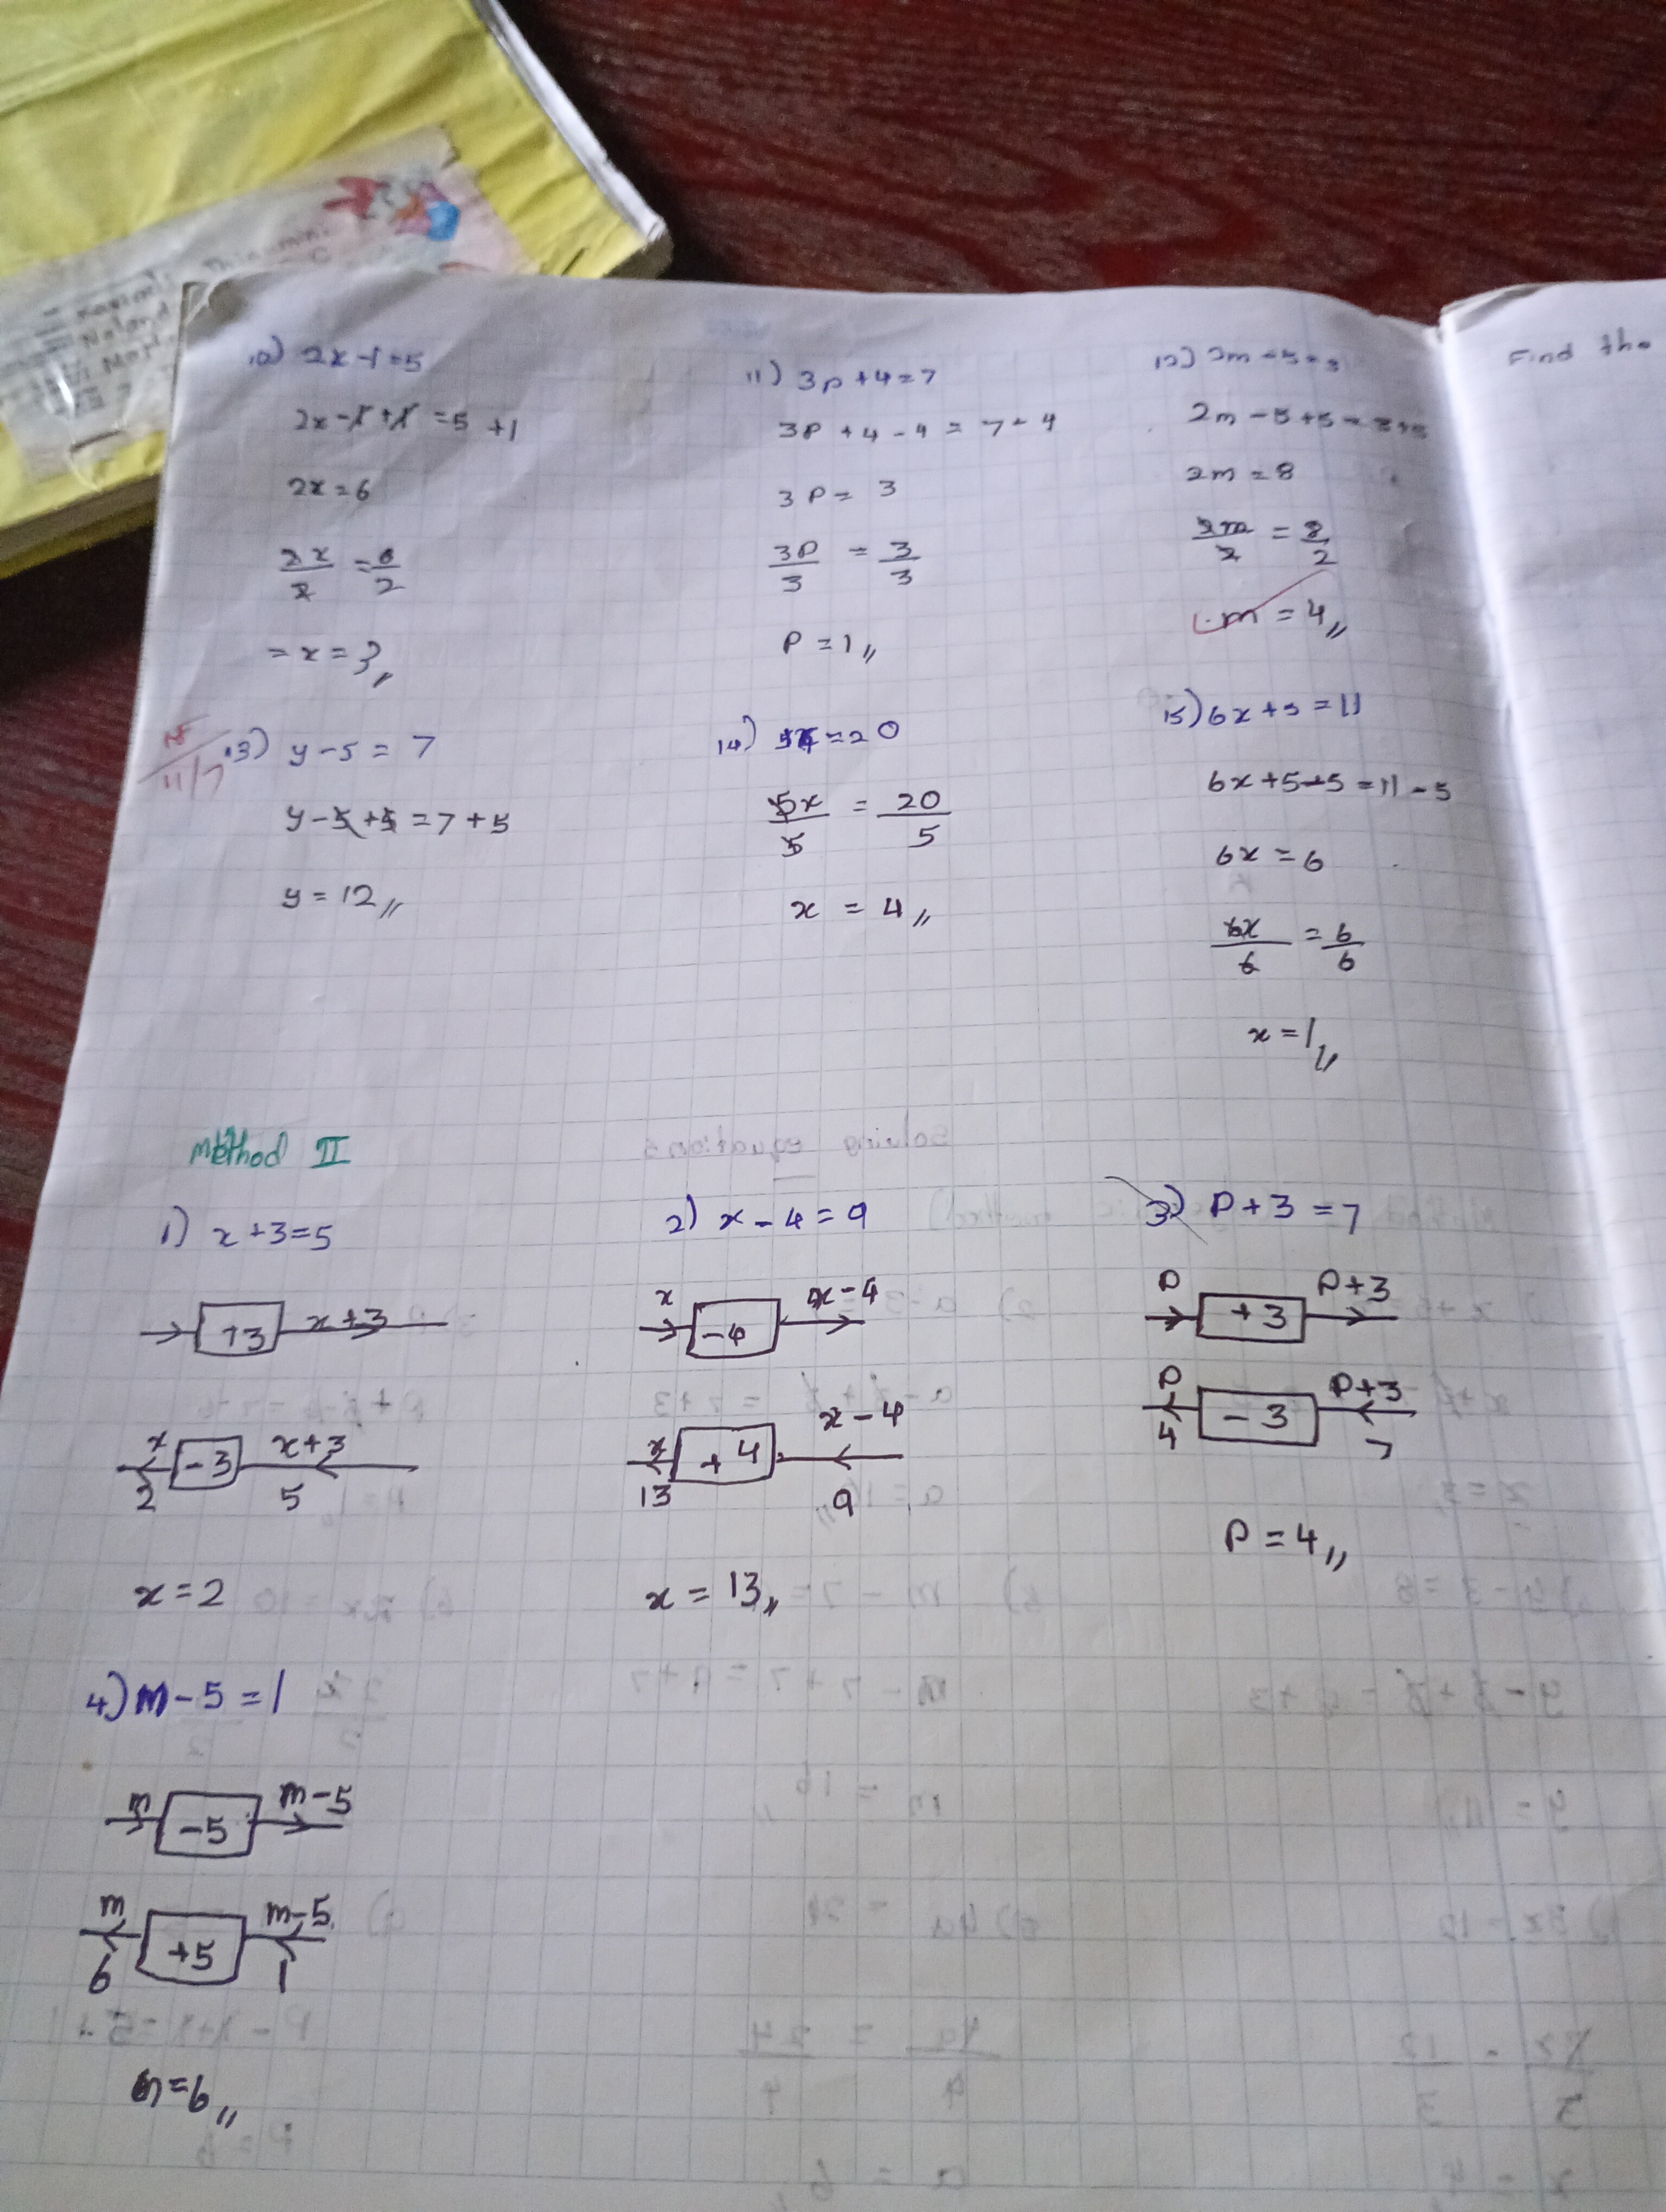 10) 2x-1=5
2x-1+1=5+1
2x=6
2x/2=6/2
=x=3,,
11) 3p+4=7
3p+4-4=7-4
3p=3
3p/3=3/3
p=1,,
12) 2m-5=3
2m-5+5=3+5
2m=8
2m/2=8/2
m=4,,
11/7
13) y-5=7
y-5+5=7+5
y=12,,
14) 5x=20
5x/5=20/5
x=4,,
15) 6x+5=11
6x+5-5=11-5
6x=6
6x/6=6/6
x=1,,
Method II
1) x+3=5
+3 x+3
x -3 x+3
2 5
x=2
2) x-4=9
x -4 x-4
x +4 x-4
13 9
x=13,,
3) P+3=7
P +3 P+3
P -3 P+3
4 7
P=4,,
4) m-5=1
m -5 m-5
m +5 m-5
6 1
m=6,,
Find the